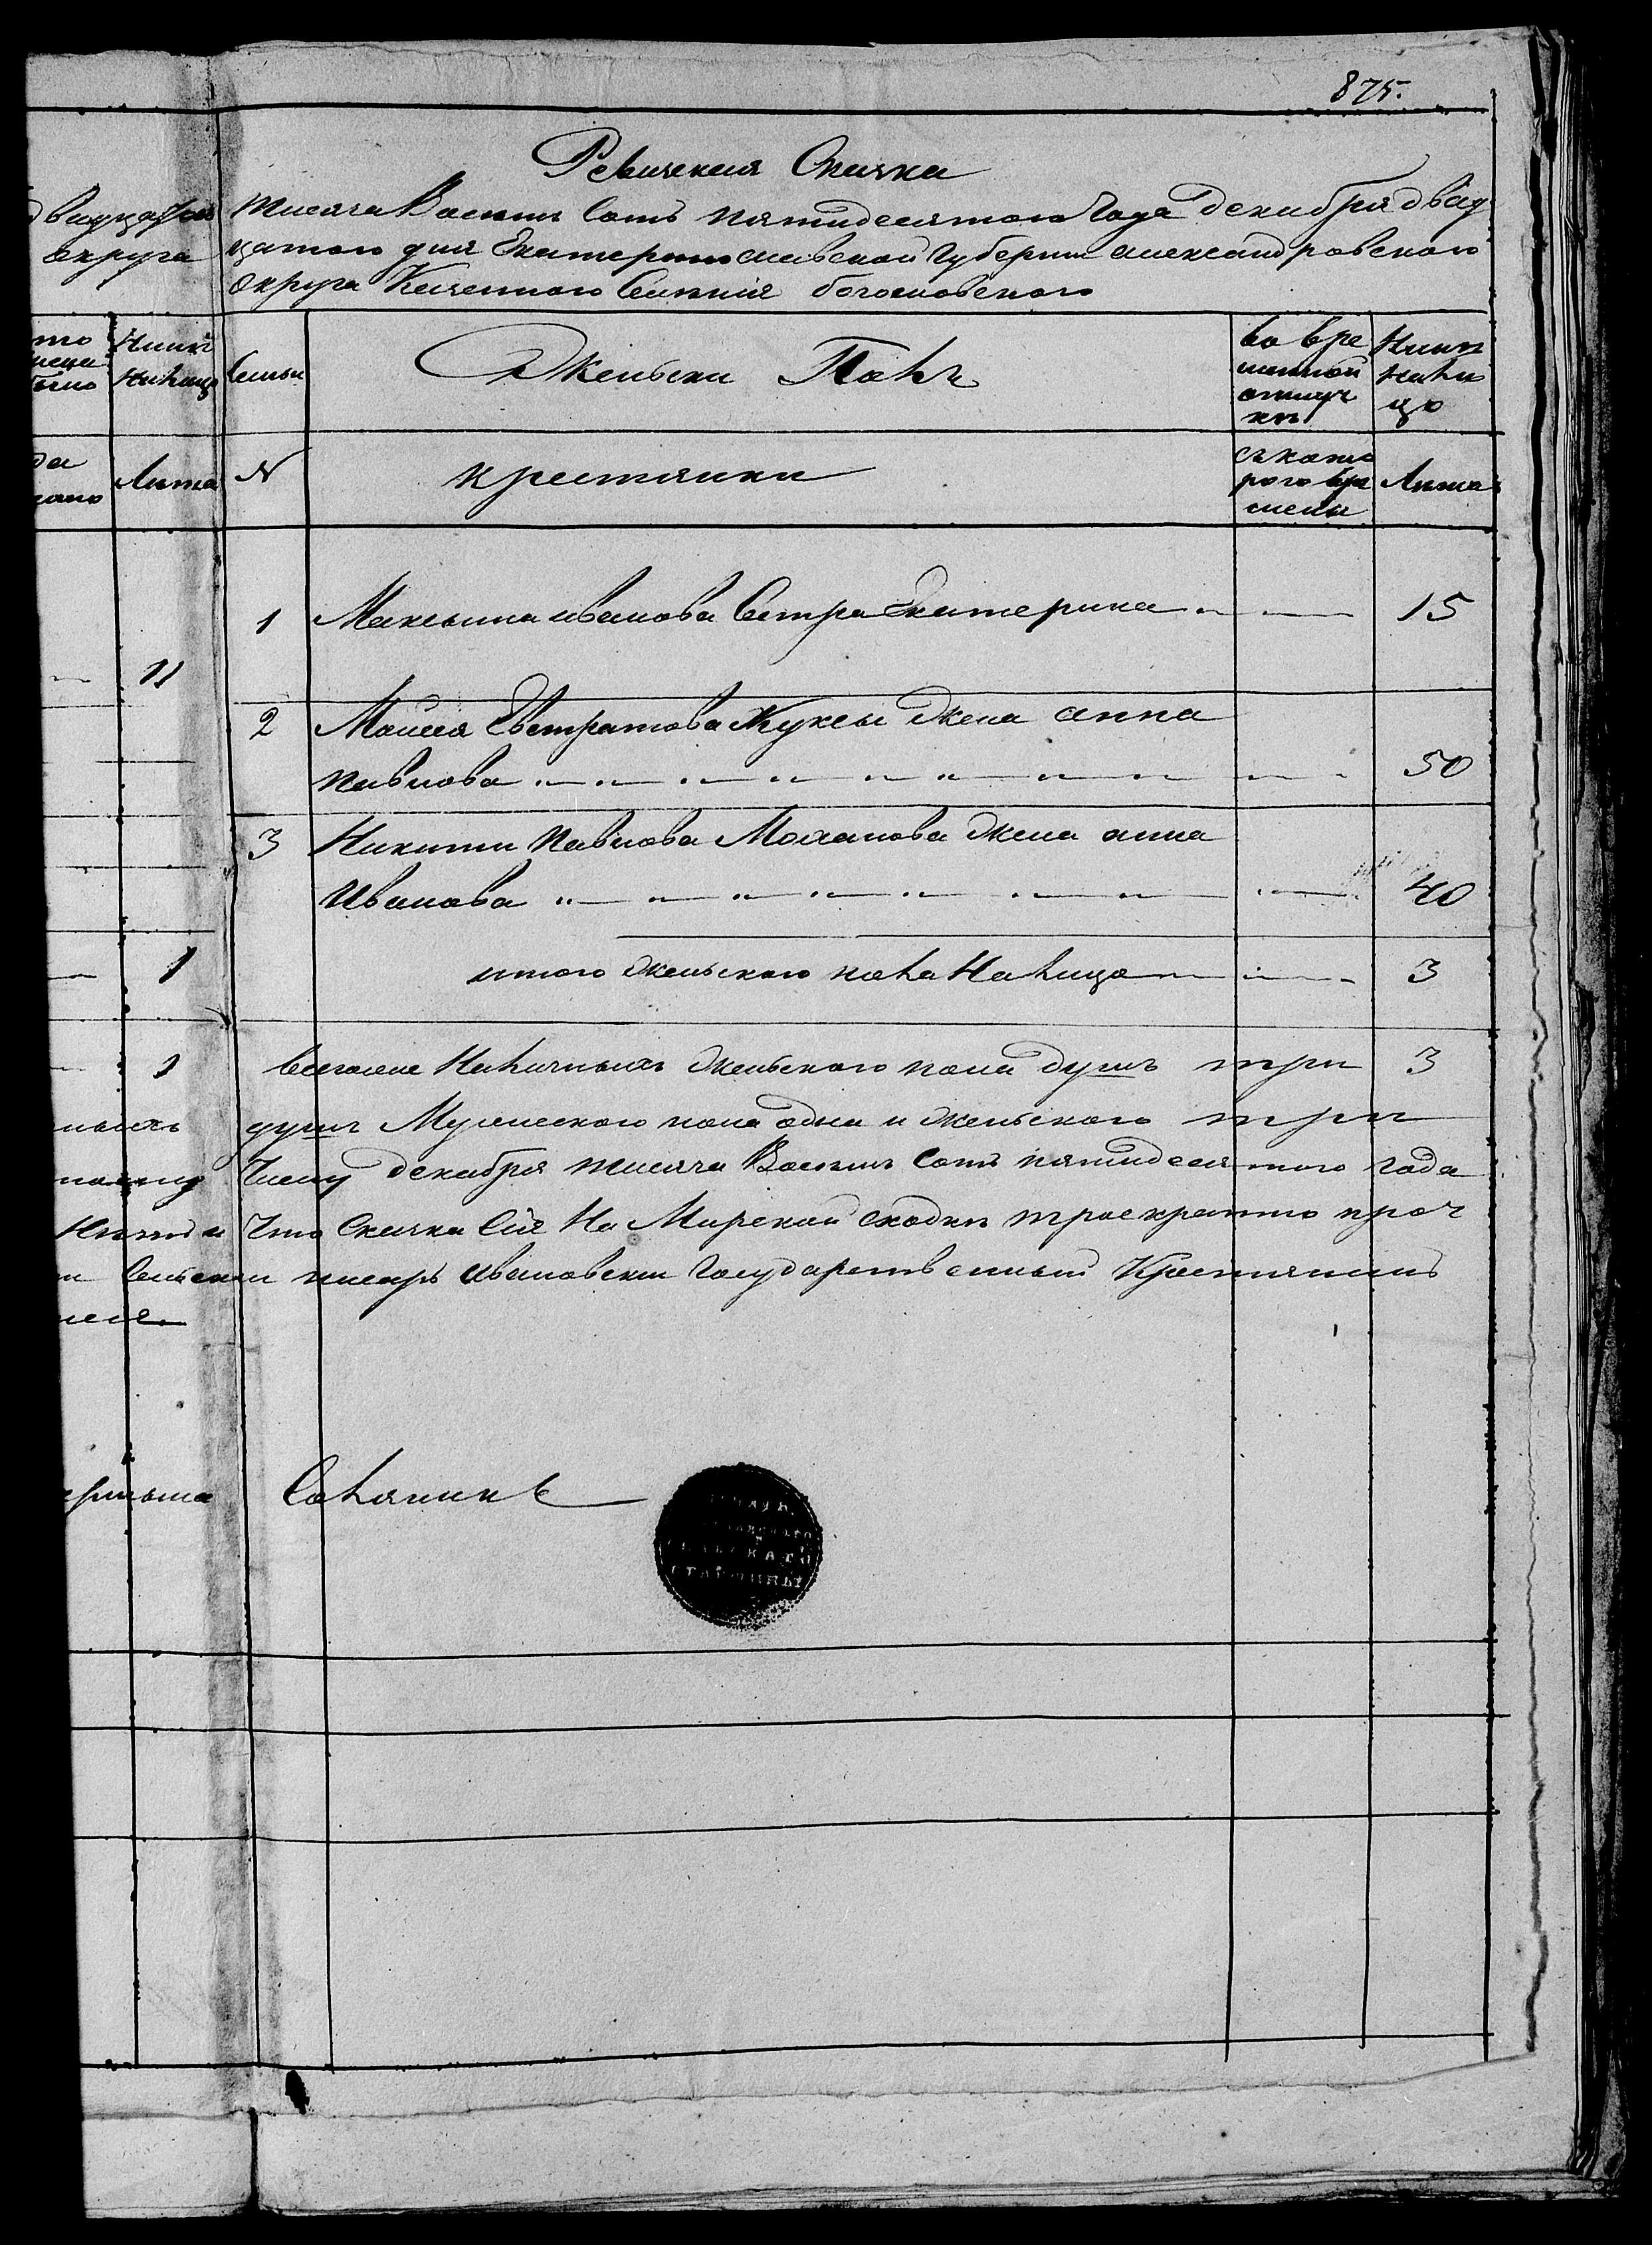 875.
Ревизская Сказка
двадцатаго
тисяча Восемь Сотъ пятидесятого Года Декабря двад
округа
цатого дня Екатеринославской Губернии Александровского
округа Казенного Селения Богословского
Нине
На лицо
Семьи
Женски Полъ
во вре
менной
отлуч
ке
Нине
на ли
цо
Лета
N
крестянки
съ кото
рого вре
мени
Лета
1 Максыма иванова Сетра Екатерина 15
11
2 Моисея Евстратова Куксы жена анна
павлова 50
3 Никиты Павлова Молчанова жена анна
Иванова 40
1 итого женского пола На лицо 3
1 Всего Наличныхъ женского пола душъ три 3
душъ Мужеского пола одна и женского три
декабря тисяча Восемь Сотъ пятидесятого года
Что Сказка Сія На Мирской сходке троекратно проч
писарь Ивановски Государственный Крестянинъ
СЕЛЬСКАГО
СТАРШИНЫ